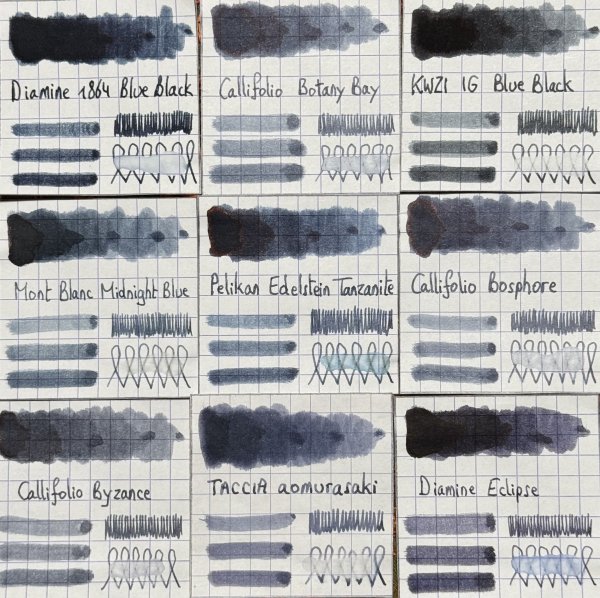 Diamine 1864 Blue Black
Callifolio Botany Bay
KWZI IG Blue Black
Mont Blanc Midnight Blue
Pelikan Edelstein Tanzanite
Callifolio Bosphore
Callifolio Byzance
TACCIA aomurasaki
Diamine Eclipse